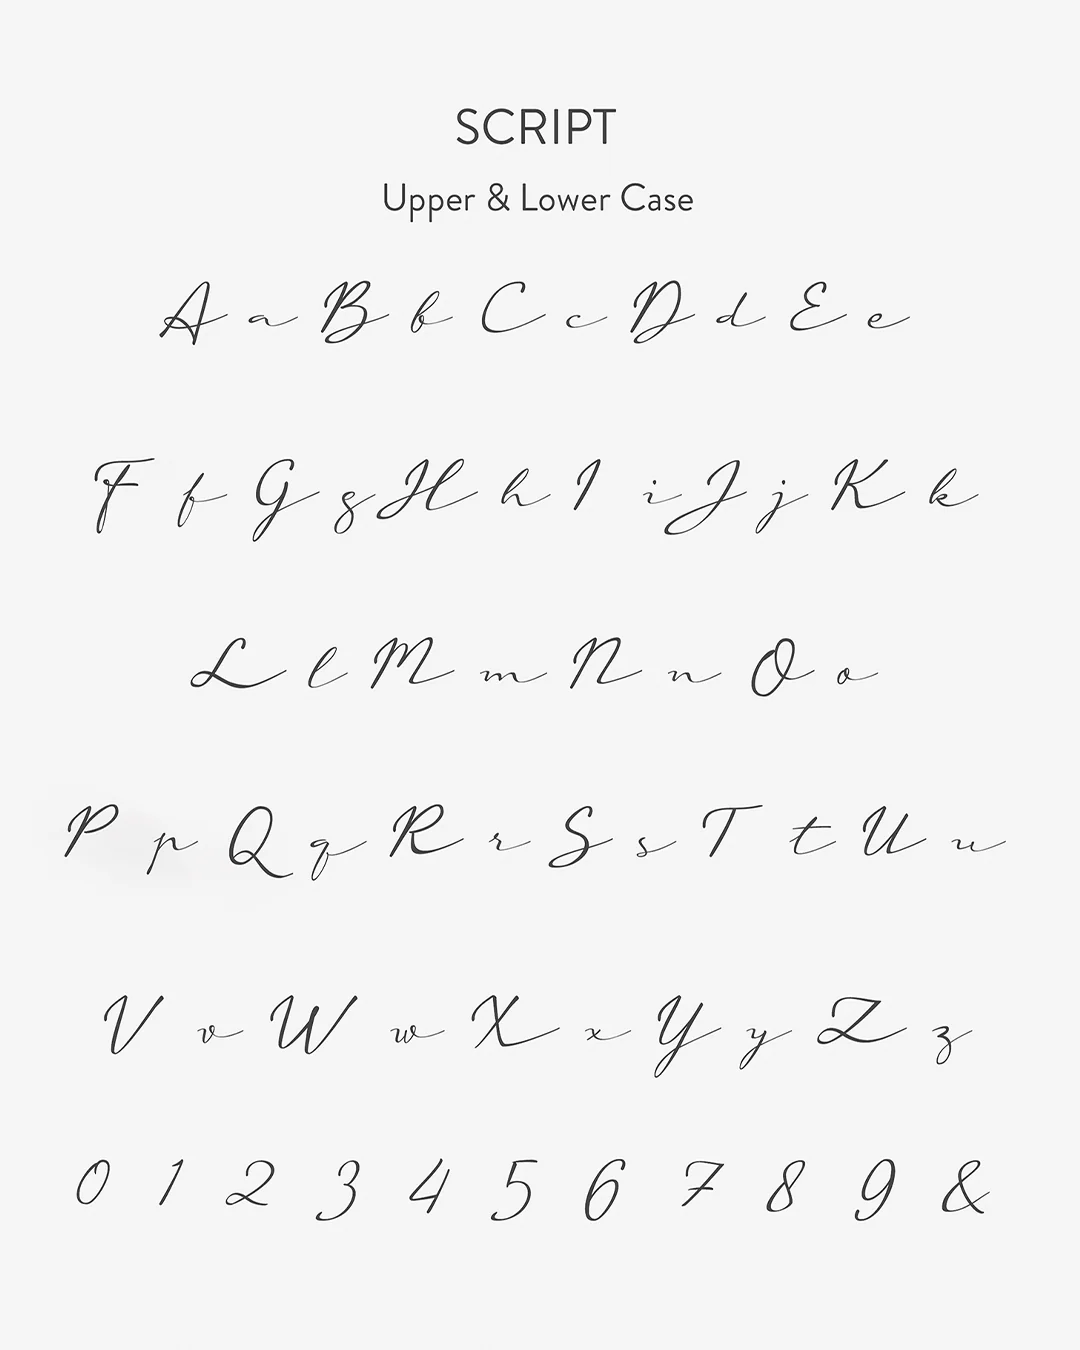 SCRIPT
Upper & Lower Case
A a B b C c D d E e
F f G g H h I i J j K k
L l M m N n O o
P p Q q R r S s T t U u
V v W w X x Y y Z z
0 1 2 3 4 5 6 7 8 9 &